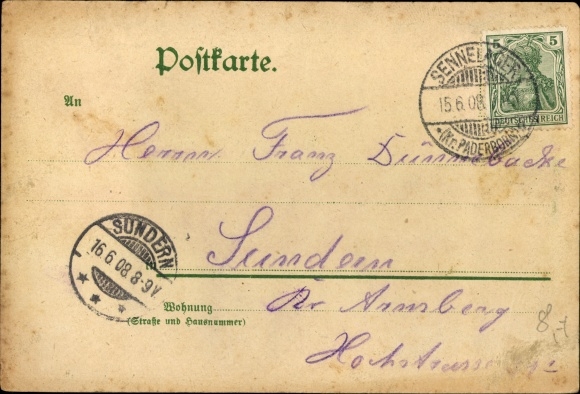 Postkarte.
5
DEUTSCHES REICH
SENNELAGER
15.6.08.
*(Kr. PADERBORN)*
An
Herrn Franz Dünnebacke
Sundern
SUNDERN
16.6.08.8-9V
Wohnung
(Straße und Hausnummer)
Kr Arnsberg
8